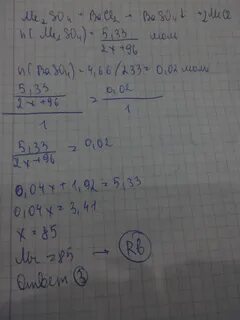 Me₂SO₄ + BaCl₂ → BaSO₄↓ + 2MeCl
n(Me₂SO₄) = 5,33 / 2x+96 моль
n(BaSO₄) = 4,66/233 = 0,02 моль
5,33 / 2x+96 / 1 = 0,02 / 1
5,33 / 2x+96 = 0,02
0,04x + 1,92 = 5,33
0,04x = 3,41
x = 85
Mr = 85 → Rb
Ответ 3